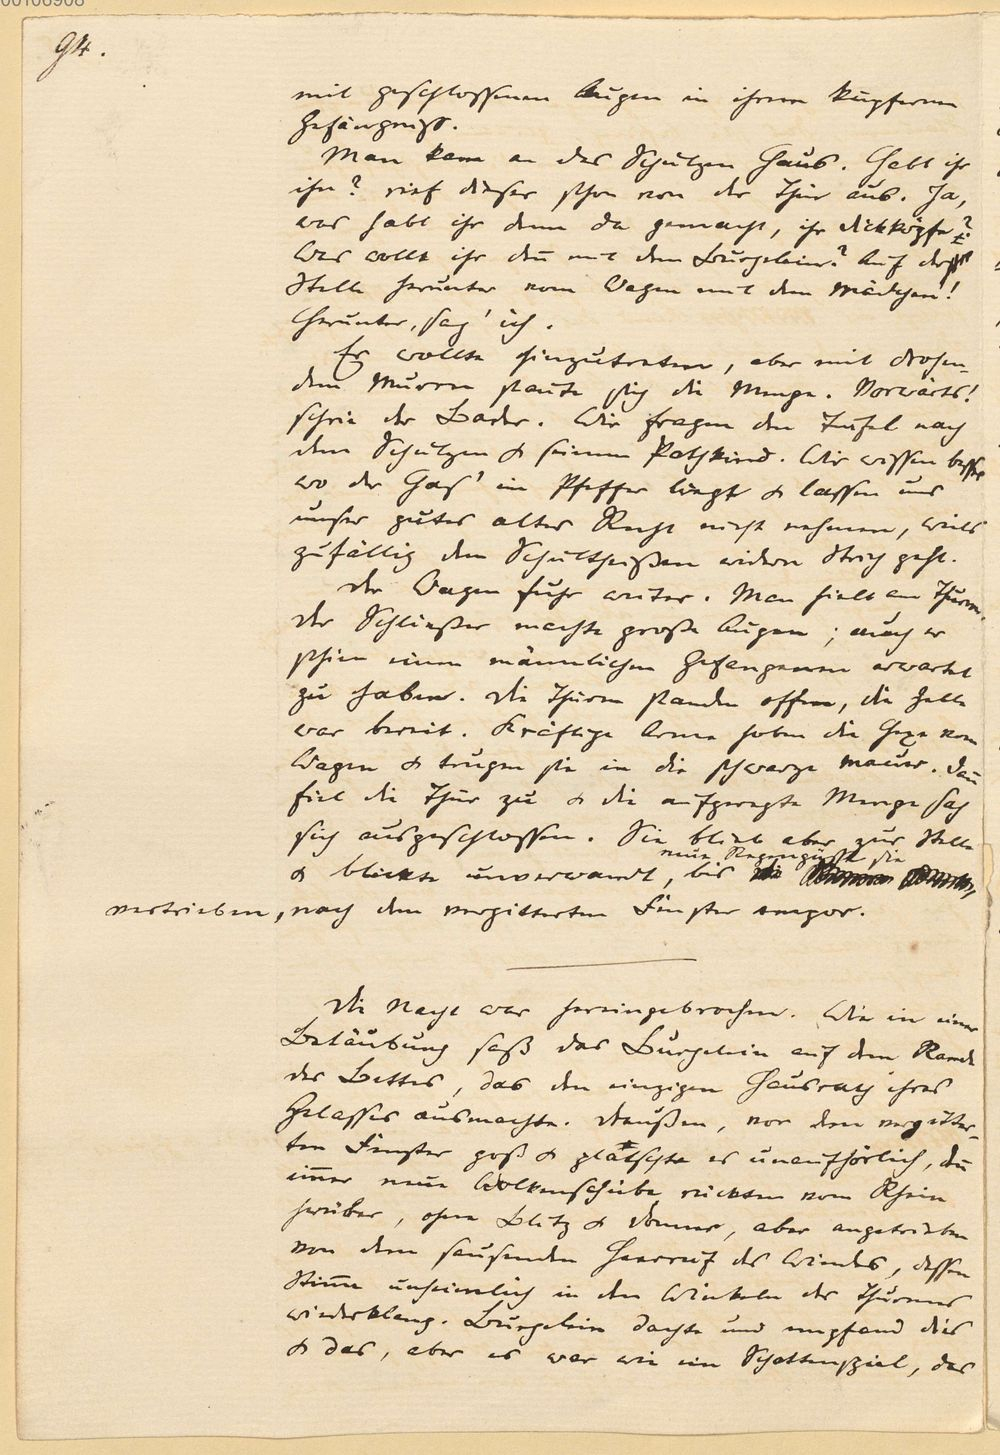 00106908
94.
mit geschlossenen Augen in ihrem kupfernen
Gefängniß.
Man kam an des Schulzen Haus. Habt ihr
ihn? rief dieser schon von der Thür aus. Ja,
was habt ihr denn da gemacht, ihr Dickköpfe?
Was wollt ihr deñ mit dem Bürgelein? Auf der
Stelle herunter vom Wagen mit dem Mädchen!
Herunter, sag' ich.
Er wollte hinzutreten, aber mit drohen-
dem Murren staute sich die Menge. Vorwärts!
schrie der Bader. Wir fragen den Teufel nach
dem Schulzen & seinem Pathkind. Wir wissen besser
wo der Has' im Pfeffer liegt & lassen uns
unser gutes altes Recht nicht nehmen, weils
zufällig dem Schultheißen widern Strich geht.
Der Wagen fuhr weiter. Man hielt am Thurm.
Der Schließer machte große Augen; auch er
schien einen männlichen Gefangenen erwartet
zu haben. Die Thüren standen offen, die Zelle
war bereit. Kräftige Arme hoben die Hexe vom
Wagen & trugen sie in die schwarze Mauer. Dañ
fiel die Thür zu & die aufgeregte Menge sah
sich ausgeschlossen. Sie blieb aber zur Stelle
neue Regengüsse sie
& blickte unverwandt, bis
vertrieben, nach dem vergitterten Fenster empor.
Die Nacht war hereingebrochen. Wie in einer
Betäubung saß das Bürgelein auf dem Rande
des Bettes, das den einzigen Hausrath ihres
Gelasses ausmachte. Draußen, vor dem vergitter-
ten Fenster goß & plätschte es unaufhörlich, deñ
im̃er neue Wolkenschübe rückten vom Rhein
herüber, ohne Blitz & Donner, aber angetrieben
von dem sausenden Heerruf des Windes, dessen
Stim̃e unheimlich in den Winkeln des Thurmes
wiederklang. Bürgelein dachte und empfand dies
& das, aber es war wie ein Schattenspiel, das